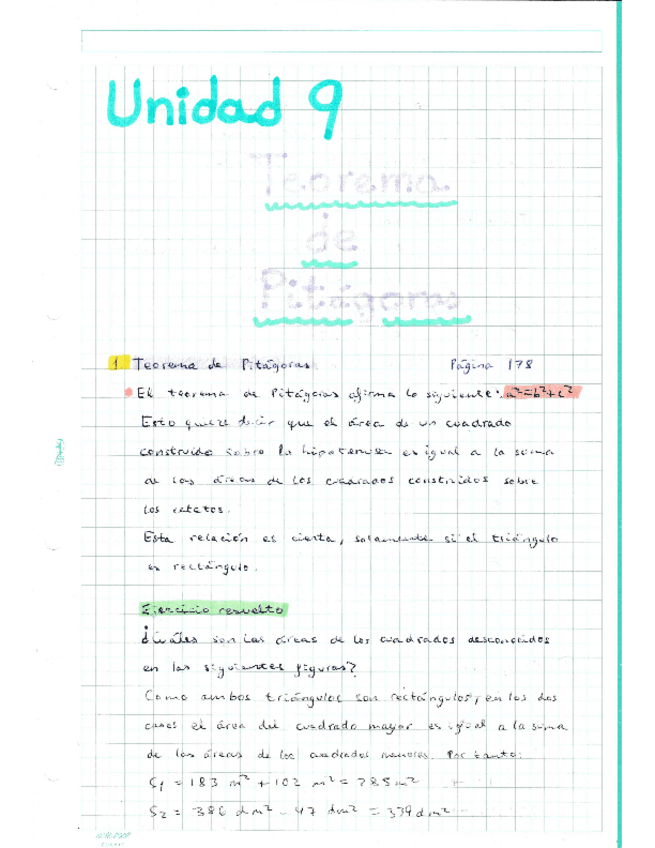 Unidad 9
Teorema
de
Pitágoras
1. Teorema de Pitágoras Página 178
El teorema de Pitágoras afirma lo siguiente: a²=b²+c²
Esto quiere decir que el área de un cuadrado
construido sobre la hipotenusa es igual a la suma
de las áreas de los cuadrados construidos sobre
los catetos.
Esta relación es cierta, solamente si el triángulo
es rectángulo.
Ejercicio resuelto
¿Cuáles son las áreas de los cuadrados desconocidos
en las siguientes figuras?
Como ambos triángulos son rectángulos, en los dos
casos el área del cuadrado mayor es igual a la suma
de las áreas de los cuadrados menores. Por tanto:
S₁ = 183 m² + 102 m² = 285 m²
S₂ = 386 dm² - 47 dm² = 339 dm²